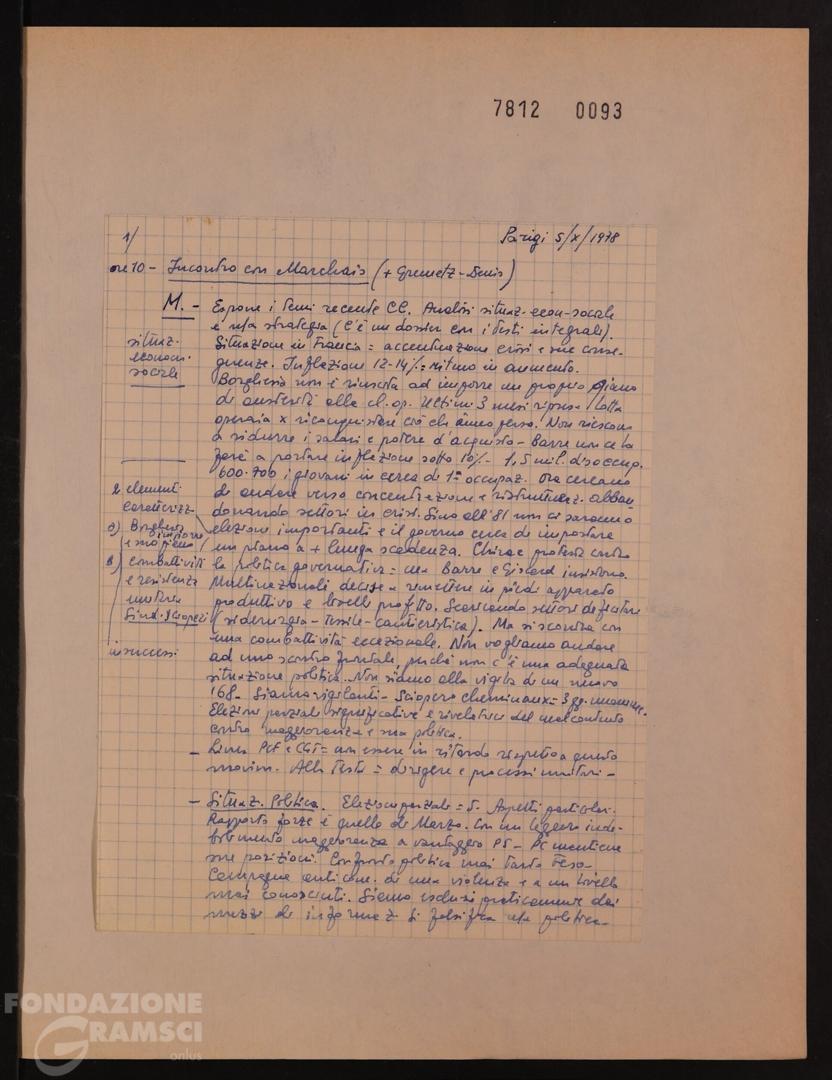 7812 0093
1/
Parigi 5/X/1978
ore 10 - Incontro con Marchais (+ Gremetz - Denis)
M. - Espone i temi recente CC. Analisi situaz. econ-sociale
e ns/a strategia (C'è un dossier con i testi integrali).
situaz.
econom.
sociale
Situazione in Francia = accentuazione crisi e sue conse-
guenze. Inflazione 12-14% = ritmo in aumento.
Borghesia non è riuscita ad imporre un proprio piano
di austerità alla cl. op. Ultimi 3 mesi ripresa lotta
operaia x riconquistare ciò che aveva perso. Non riescono
a ridurre i salari e potere d'acquisto - Barre non ce la
farà a portare inflazione sotto 10% - 1,5 mil. disoccup.
600-700 i giovani in cerca di 1ª occupaz. Ora cercano
di andare verso concentrazione e ristrutturaz. abban-
donando settori in crisi. Sino all'81 non ci saranno
elezioni importanti e il governo cerca di impostare
un piano a + lunga scadenza. Chirac protesta contro
la politica governativa = ma Barre e Giscard insistono.
2 elementi
caratterizz.
a) Borghesia
imporre
e suo piano
b) combattività
e resistenza
unitaria
Sind. Scioperi
insuccessi
Multinazionali decise a rimettere in piedi apparato
produttivo e livelli profitto. Scaricando settori deficitari
(siderurgia - tessile - cantieristica). Ma si scontra con
una combattività eccezionale. Non vogliamo andare
ad uno scontro frontale, perché non c'è una adeguata
situazione politica. Non siamo alla vigilia di un nuovo
'68 - Siamo vigilanti - Sciopero cheminaux = 3 gg.
Elezioni parziali significative e rivelatrici del malcontento
contro maggioranza e sua politica.
- Linea PCF e CGT = non essere in ritardo rispetto a questo
movim. Alla testa = dirigere e processi unitari -
- Situaz. Politica. Elezioni parziali = 5. Aspetti particolari.
Rapporto forze è quello di Marzo. Con un leggero inde-
bolimento maggioranza a vantaggio PS - PC mantiene
sue posizioni. Confronto politico mai tanto teso -
Campagna anticom. di una violenza e a un livello
mai conosciuti. Siamo esclusi praticamente dai
mezzi di informaz. Si falsifica ns/a politica -
FONDAZIONE
GRAMSCI
onlus